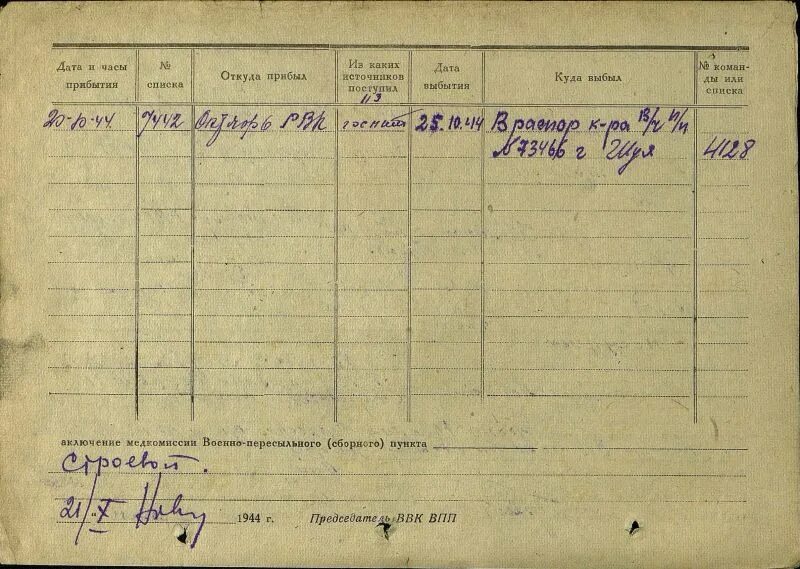 Дата и часы прибытия | № списка | Откуда прибыл | Из каких источников поступил | Дата выбытия | Куда выбыл | № команды или списка
20-10-44 | 7442 | Октябр РВК | из госпит | 25.10.44 | В распор к-ра в/ч п/п
№ 73466 г Шуя | 4128
аключение медкомиссии Военно-пересыльного (сборного) пункта
Строевой.
21/X 1944 г. Председатель ВВК ВПП